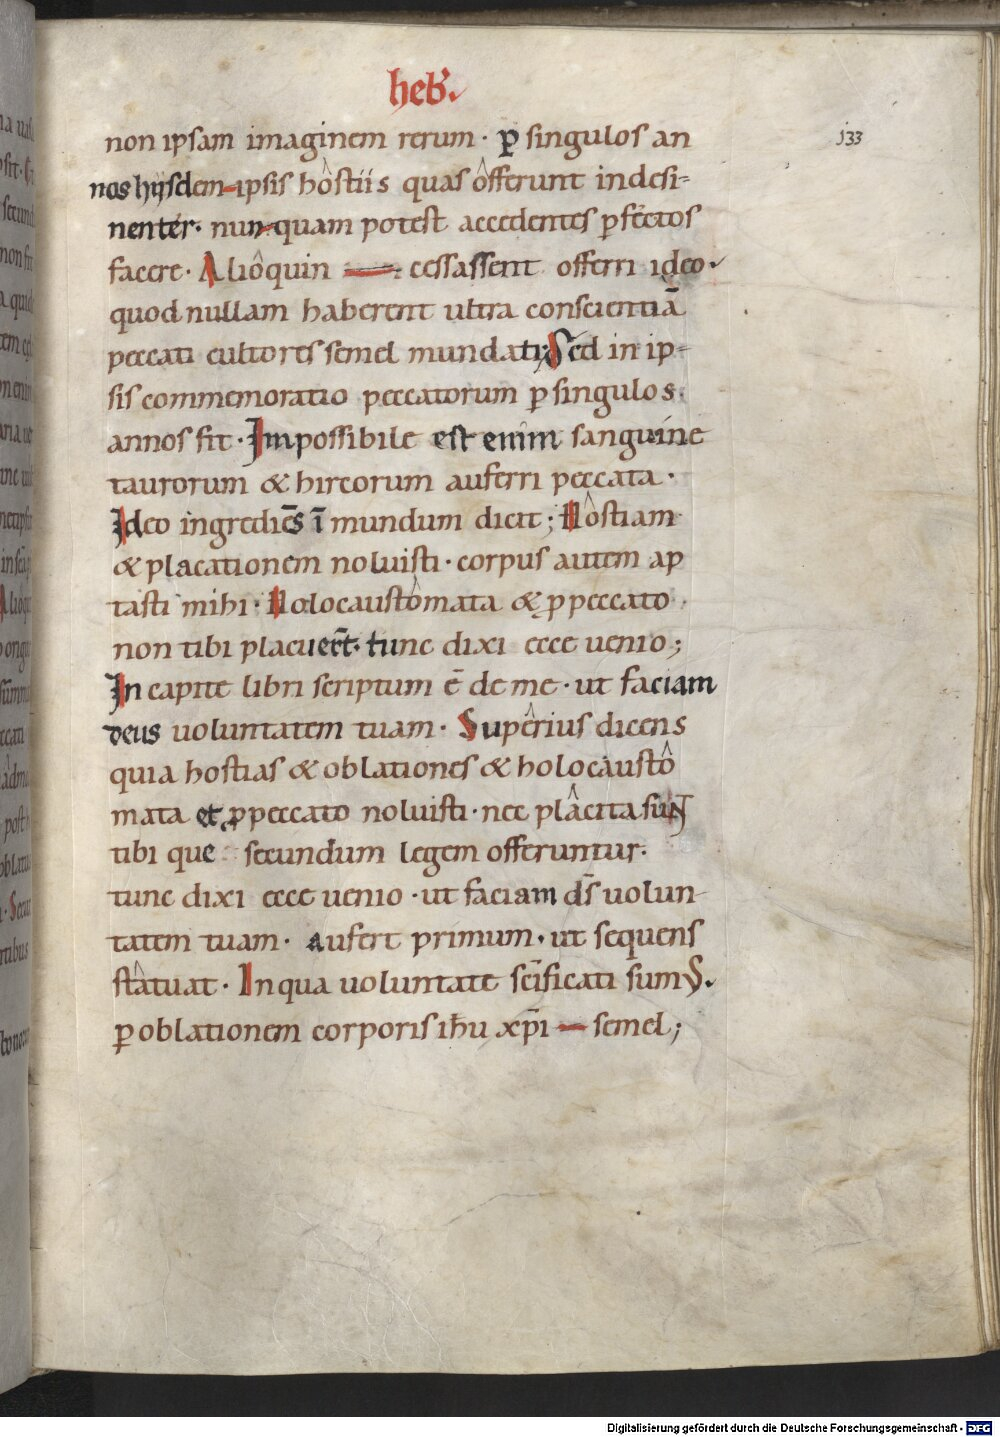 heb̄.
133
non ipsam imaginem rerum · ꝑ singulos an
nos hijsdem ipsis hôstiis quas ôfferunt indesi-
nenter · nunquam potest accedentes ꝑfectos
facere · Aliôquin cessassent offerri ideo
quod nullam haberent ultra conscientiā
peccati cultores semel mundati; Sed in ip-
sis commemoratio peccatorum ꝑ singulos
annos fit · Impossibile est enim sanguine
taurorum & hircorum auferri peccata ·
Ideo ingrediēs ī mundum dicit; Hôstiam
& placationem noluisti · corpus autem ap
tasti mihi · Holocaustômata & ꝓ peccato
non tibi placuer̄t · tunc dixi ecce uenio;
In capite libri scriptum ē de me · ut faciam
deus uoluntatem tuam · Supêrius dicens
quia hostias & oblationes & holocaustô
mata et ꝓ peccato noluisti · nec plâcita sunt
tibi que secundum legem offeruntur ·
tunc dixi ecce uenio · ut faciam ds̄ uolun
tatem tuam · aufert primum · ut sequens
stâtuat · In qua uoluntate sc̄ificati sumꝰ.
ꝑ oblationem corporis ih̄u xp̄i semel;
Digitalisierung gefördert durch die Deutsche Forschungsgemeinschaft - DFG